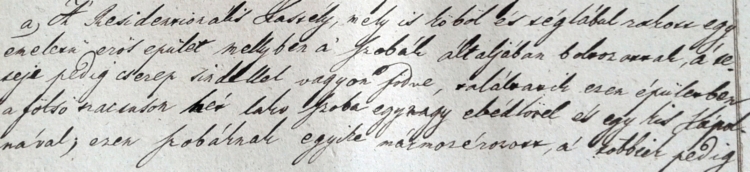 a, A Residentionalis Kastély, mely is kőből és téglábol rakott egy
emeletü erős epület mellyben a' szobák általjában boltozottak, a' te-
teje pedig cserep sindellel vagyon födve, találtatik ezen épületben
a fölső tractuson hét lakó szoba egy nagy ebédlővel és egy kis kápol-
nával; ezen szobáknak egyike mármorozott, a' többiek pedig